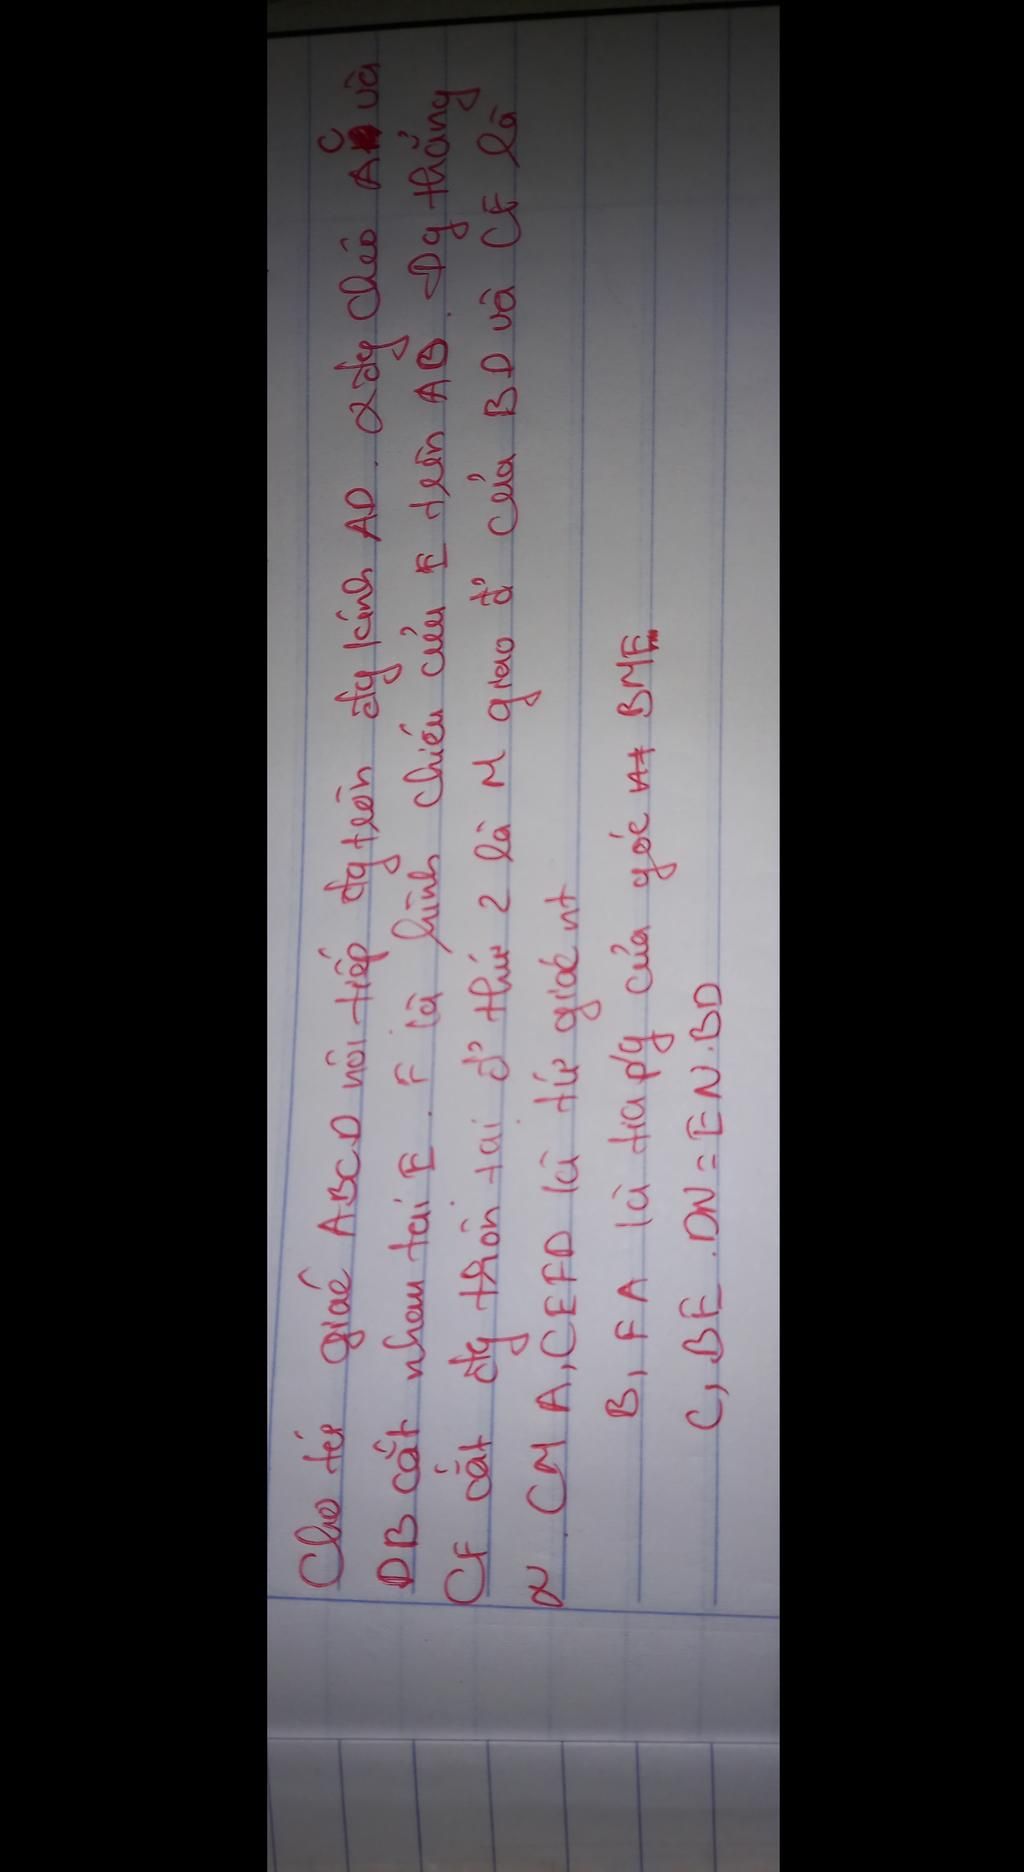 Cho tứ giác ABCD nội tiếp đg tròn đg kính AD. 2 đg chéo AC và
DB cắt nhau tại E. F là hình chiếu của E trên AB. Đg thẳng
CF cắt đg tròn tại đ' thứ 2 là M giao đ' của BD và CF là
N. CM A, CEFD là tứ giác nt
B, FA là tia p/g của góc BMF
C, BE.DN=EN.BD